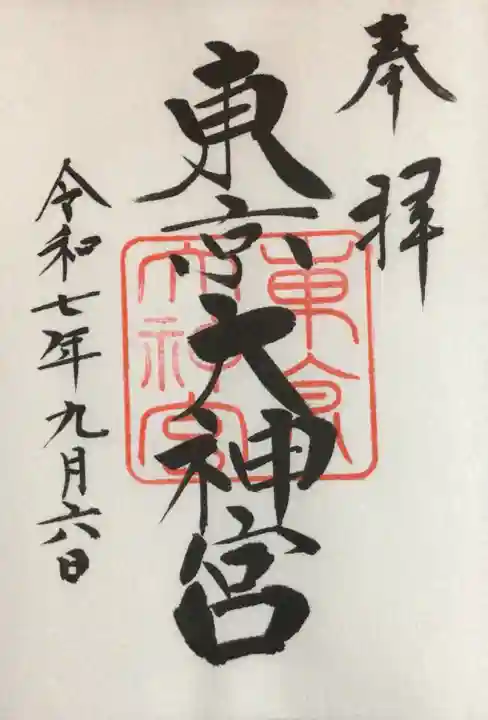 奉拝
東京大神宮
東京
大神宮
令和七年九月六日